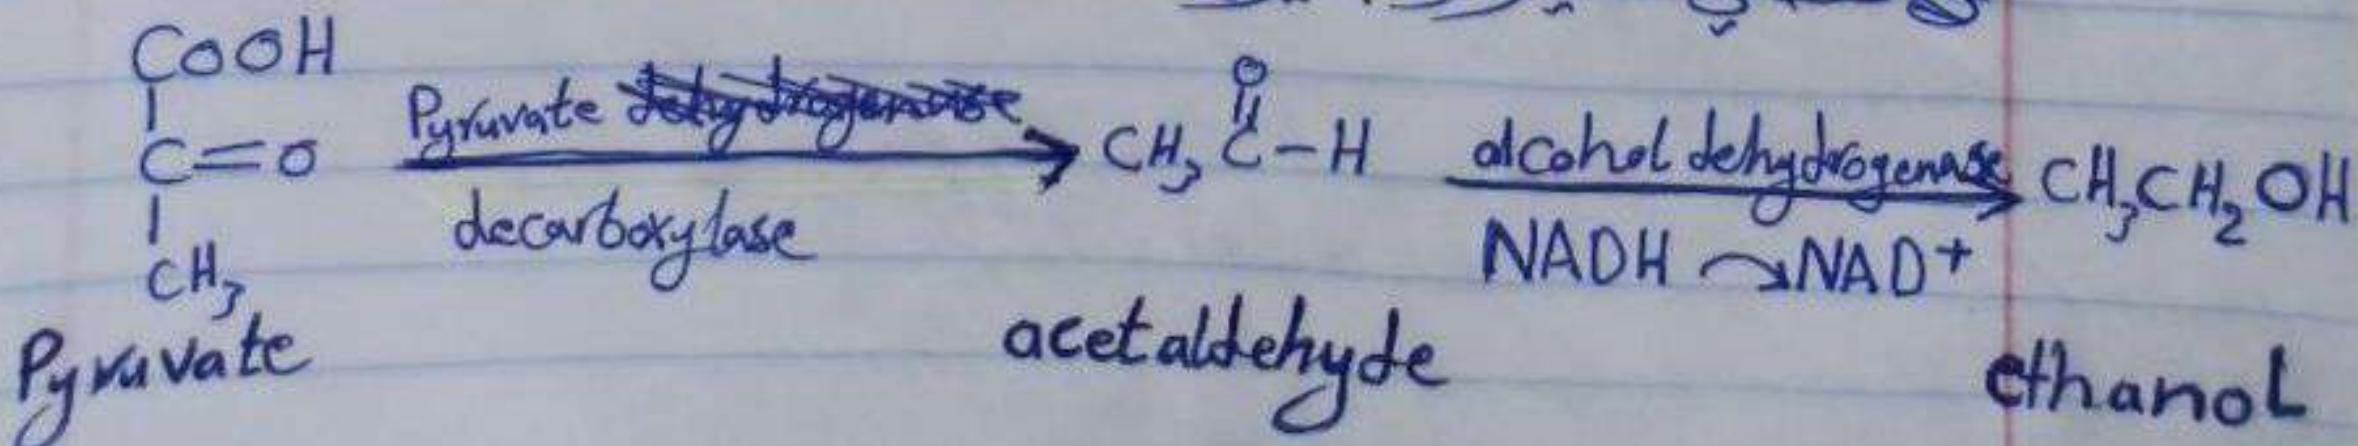 COOH
C=O
CH3
Pyruvate
Pyruvate dehydrogenase
decarboxylase
O
CH3 C-H
acetaldehyde
alcohol dehydrogenase
NADH → NAD+
CH3CH2OH
ethanol